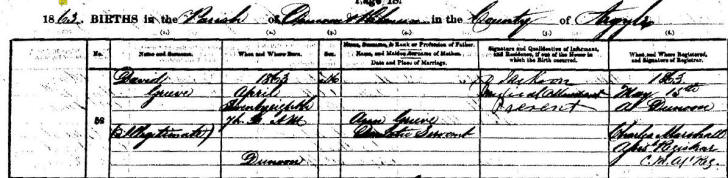 1863. BIRTHS in the Parish of Dunoon & Kilmun in the County of Argyle
No.
Name and Surname.
When and Where Born.
Sex.
Name, Surname, & Rank or Profession of Father.
Name, and Maiden Surname of Mother.
Date and Place of Marriage.
Signature and Qualification of Informant,
and Residence, if out of the House in
which the Birth occurred.
When and Where Registered,
and Signature of Registrar.
58
David
Grieve
(Illegitimate)
1863
April
Twenty eighth
Dunoon
M
Ann Grieve
Domestic Servant
Jackson
Medical Attendant
Present
1863
May 15th
At Dunoon
Charles Marshall
Registrar